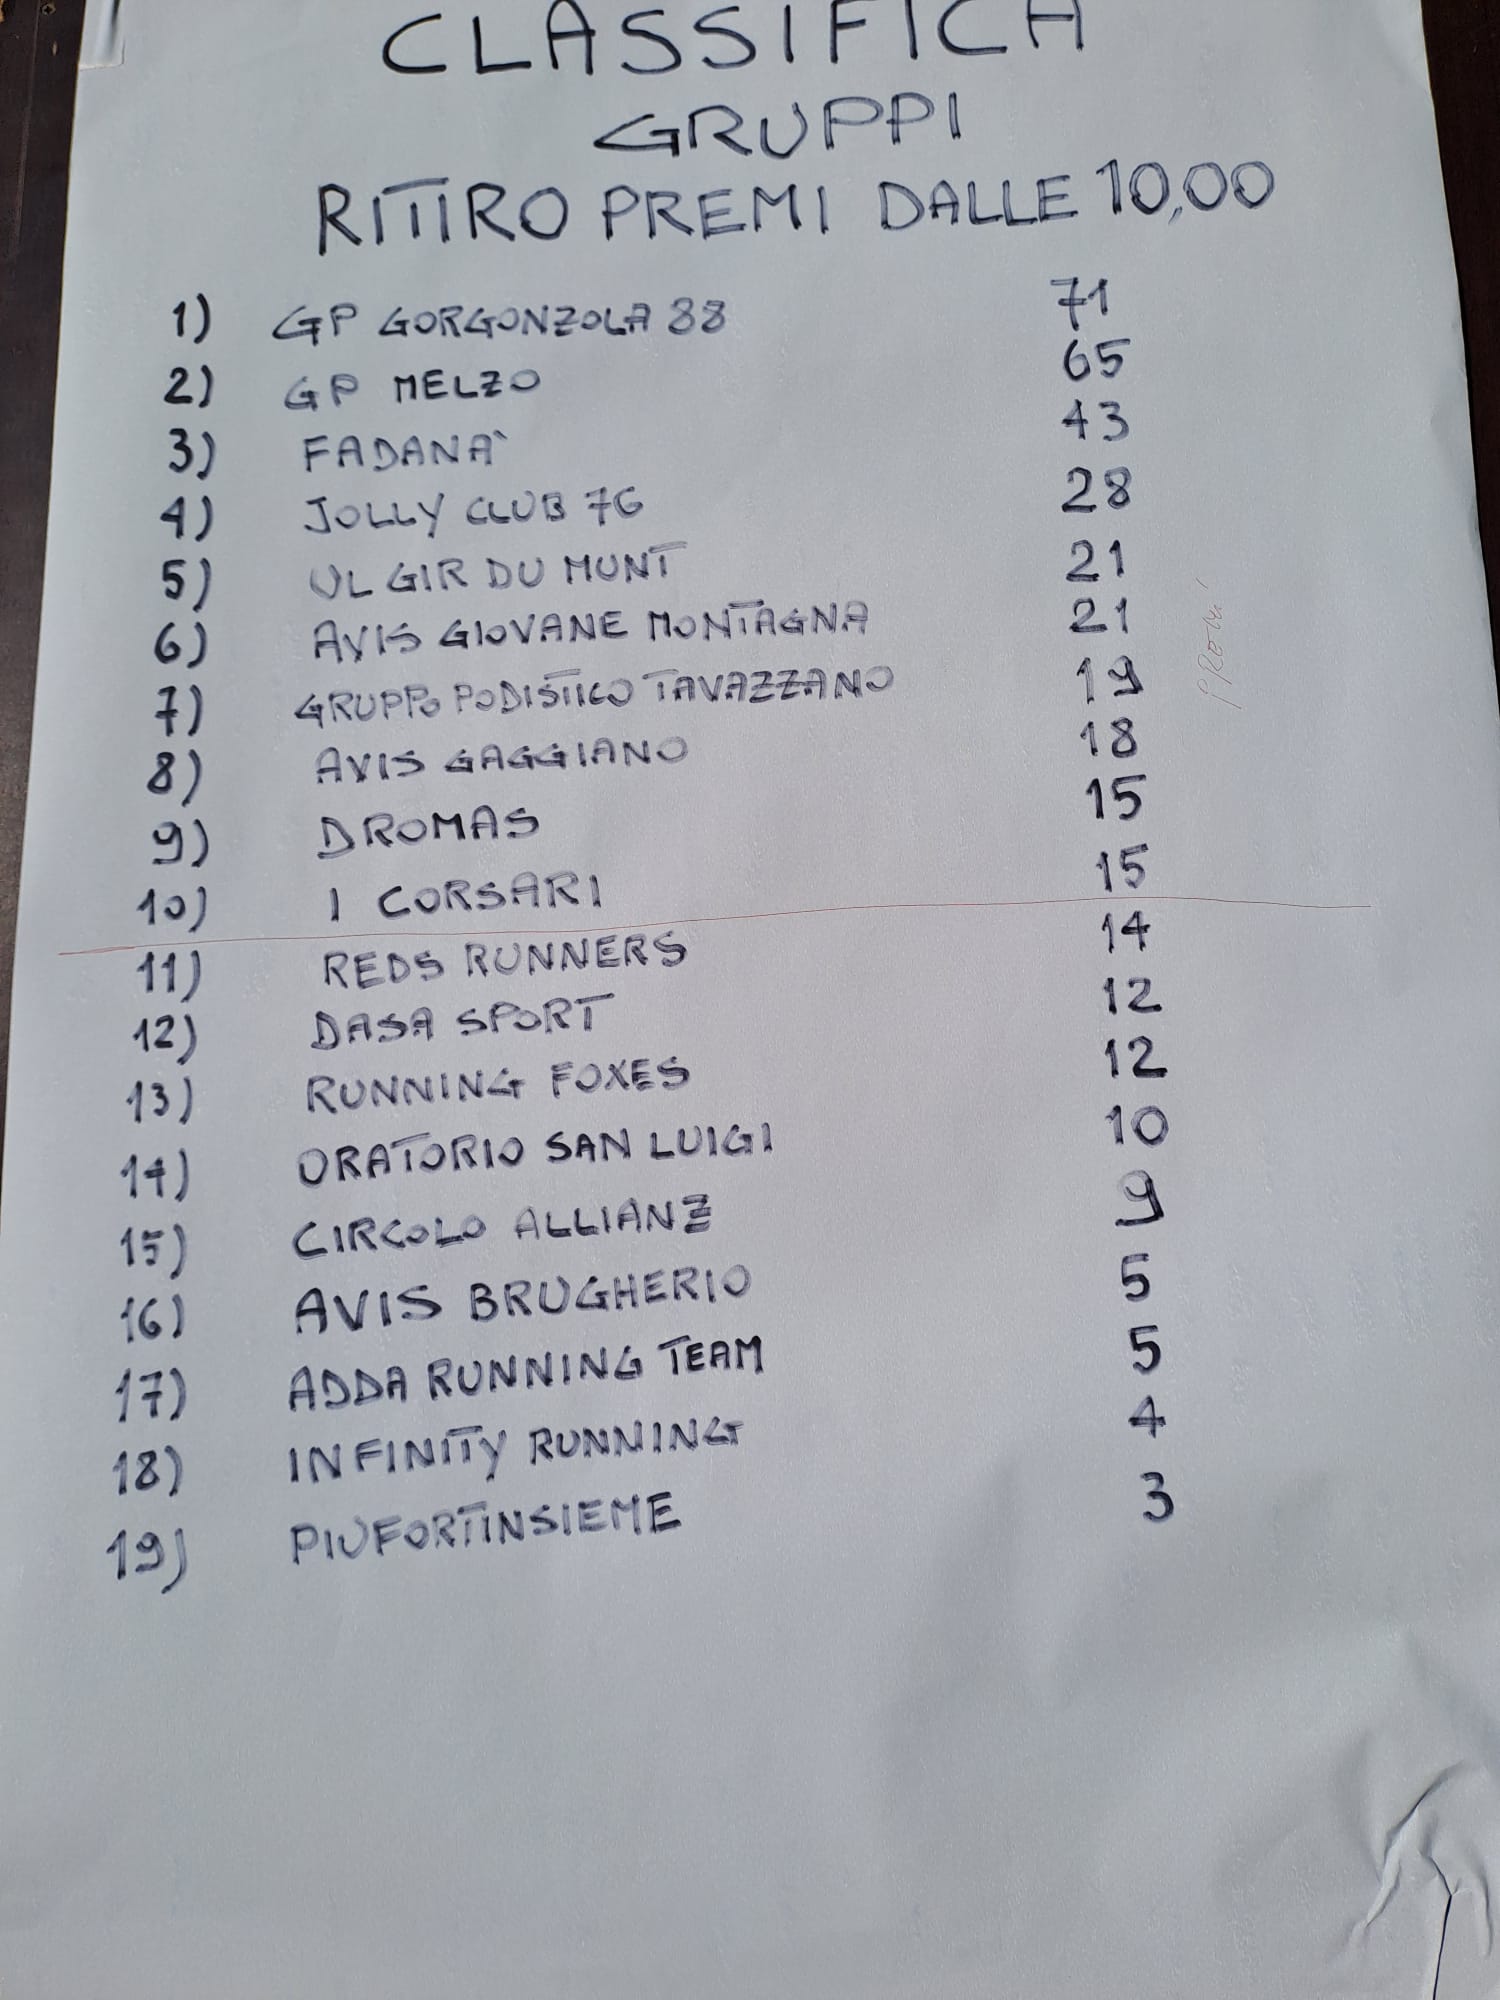 CLASSIFICA
GRUPPI
RITIRO PREMI DALLE 10,00
1) GP GORGONZOLA 88 71
2) GP MELZO 65
3) FADANA' 43
4) JOLLY CLUB 76 28
5) UL GIR DU MUNT 21
6) AVIS GIOVANE MONTAGNA 21
7) GRUPPO PODISTICO TAVAZZANO 19
8) AVIS GAGGIANO 18
9) DROMAS 15
10) I CORSARI 15
11) REDS RUNNERS 14
12) DASA SPORT 12
13) RUNNING FOXES 12
14) ORATORIO SAN LUIGI 10
15) CIRCOLO ALLIANZ 9
16) AVIS BRUGHERIO 5
17) ADDA RUNNING TEAM 5
18) INFINITY RUNNING 4
19) PIUFORTINSIEME 3